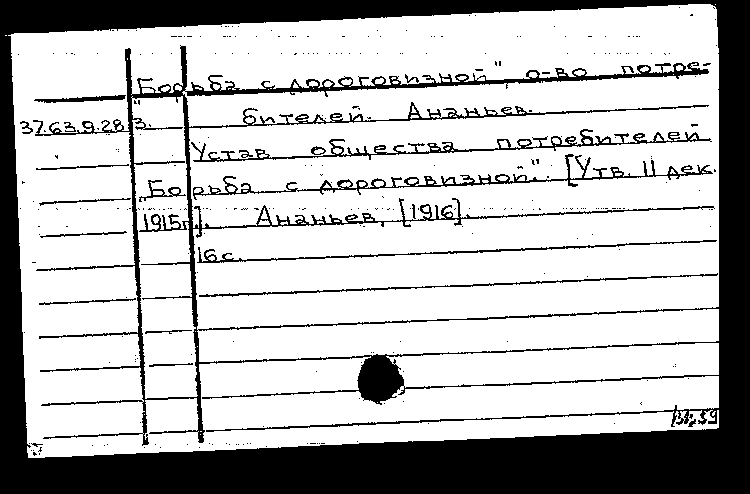 „Борьба с дороговизной", о-во потре-
37.63.9.28 3. бителей. Ананьев.
Устав общества потребителей
„Борьба с дороговизной". [Утв. 11 дек.
1915г.]. Ананьев, [1916].
16 с.